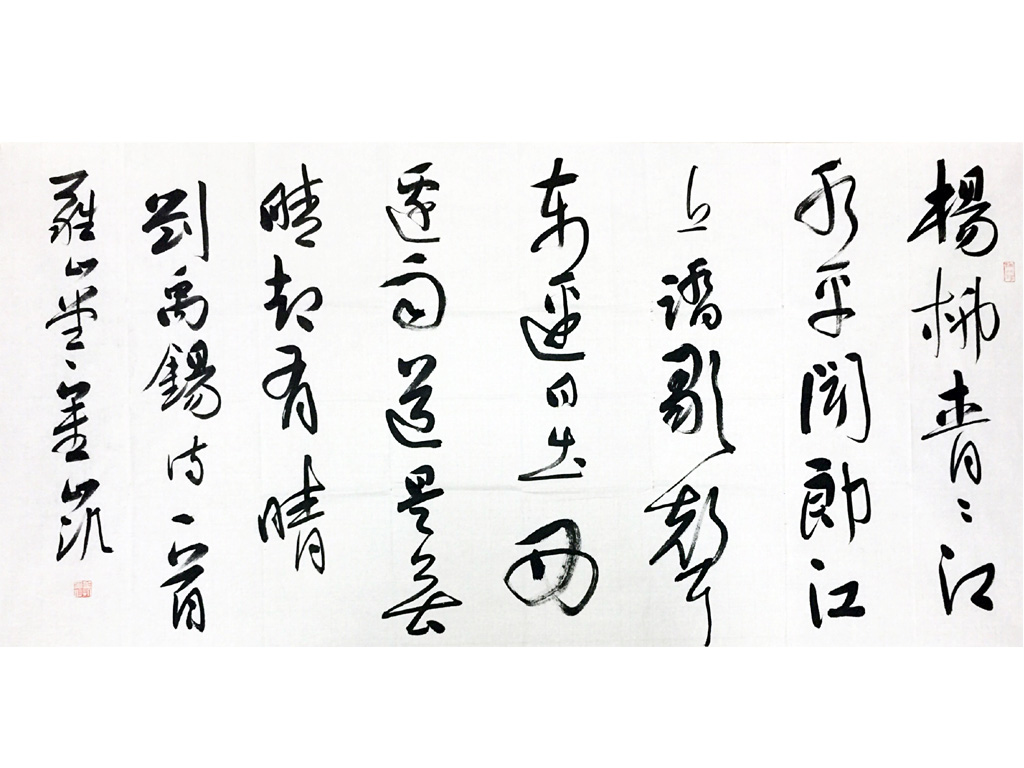 楊柳青〻江
水平聞郎江
上踏歌聲
東邊日出西
邊雨道是無
晴却有晴
劉禹錫詩一首